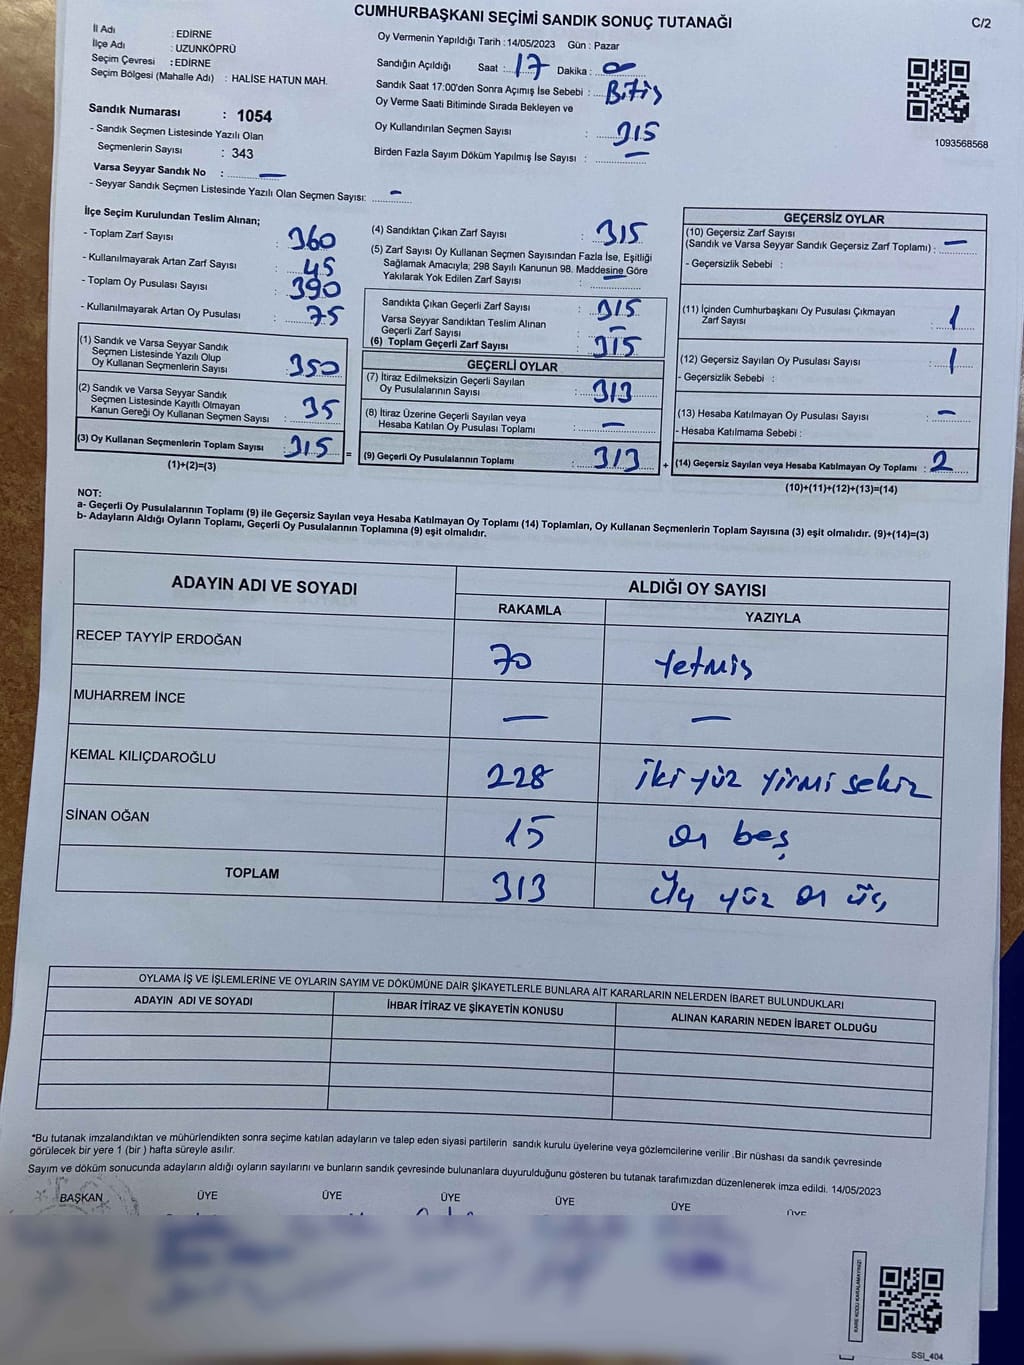 CUMHURBAŞKANI SEÇİMİ SANDIK SONUÇ TUTANAĞI
C/2
İl Adı : EDİRNE
İlçe Adı : UZUNKÖPRÜ
Seçim Çevresi : EDİRNE
Seçim Bölgesi (Mahalle Adı) : HALİSE HATUN MAH.
Sandık Numarası : 1054
- Sandık Seçmen Listesinde Yazılı Olan
Seçmenlerin Sayısı : 343
Varsa Seyyar Sandık No : —
- Seyyar Sandık Seçmen Listesinde Yazılı Olan Seçmen Sayısı: -
Oy Vermenin Yapıldığı Tarih : 14/05/2023 Gün : Pazar
Sandığın Açıldığı Saat : 17 Dakika :
Sandık Saat 17:00'den Sonra Açımış İse Sebebi : Bitiş
Oy Verme Saati Bitiminde Sırada Bekleyen ve
Oy Kullandırılan Seçmen Sayısı : 315
Birden Fazla Sayım Döküm Yapılmış İse Sayısı : —
1093568568
İlçe Seçim Kurulundan Teslim Alınan;
- Toplam Zarf Sayısı : 360
- Kullanılmayarak Artan Zarf Sayısı : 45
- Toplam Oy Pusulası Sayısı : 390
- Kullanılmayarak Artan Oy Pusulası : 75
(1) Sandık ve Varsa Seyyar Sandık
Seçmen Listesinde Yazılı Olup
Oy Kullanan Seçmenlerin Sayısı : 350
(2) Sandık ve Varsa Seyyar Sandık
Seçmen Listesinde Kayıtlı Olmayan
Kanun Gereği Oy Kullanan Seçmen Sayısı : 35
(3) Oy Kullanan Seçmenlerin Toplam Sayısı : 315 =
(1)+(2)=(3)
(4) Sandıktan Çıkan Zarf Sayısı : 315
(5) Zarf Sayısı Oy Kullanan Seçmen Sayısından Fazla İse, Eşitliği
Sağlamak Amacıyla; 298 Sayılı Kanunun 98. Maddesine Göre
Yakılarak Yok Edilen Zarf Sayısı : —
Sandıkta Çıkan Geçerli Zarf Sayısı : 315
Varsa Seyyar Sandıktan Teslim Alınan
Geçerli Zarf Sayısı : —
(6) Toplam Geçerli Zarf Sayısı : 315
GEÇERLİ OYLAR
(7) İtiraz Edilmeksizin Geçerli Sayılan
Oy Pusulalarının Sayısı : 313
(8) İtiraz Üzerine Geçerli Sayılan veya
Hesaba Katılan Oy Pusulası Toplamı : —
(9) Geçerli Oy Pusulalarının Toplamı : 313 +
GEÇERSİZ OYLAR
(10) Geçersiz Zarf Sayısı
(Sandık ve Varsa Seyyar Sandık Geçersiz Zarf Toplamı) : —
- Geçersizlik Sebebi :
(11) İçinden Cumhurbaşkanı Oy Pusulası Çıkmayan
Zarf Sayısı : 1
(12) Geçersiz Sayılan Oy Pusulası Sayısı : 1
- Geçersizlik Sebebi :
(13) Hesaba Katılmayan Oy Pusulası Sayısı : -
- Hesaba Katılmama Sebebi :
(14) Geçersiz Sayılan veya Hesaba Katılmayan Oy Toplamı : 2
(10)+(11)+(12)+(13)=(14)
NOT:
a- Geçerli Oy Pusulalarının Toplamı (9) ile Geçersiz Sayılan veya Hesaba Katılmayan Oy Toplamı (14) Toplamları, Oy Kullanan Seçmenlerin Toplam Sayısına (3) eşit olmalıdır. (9)+(14)=(3)
b- Adayların Aldığı Oyların Toplamı, Geçerli Oy Pusulalarının Toplamına (9) eşit olmalıdır.
ADAYIN ADI VE SOYADI
ALDIĞI OY SAYISI
RAKAMLA YAZIYLA
RECEP TAYYİP ERDOĞAN 70 Yetmiş
MUHARREM İNCE — —
KEMAL KILIÇDAROĞLU 228 iki yüz yirmi sekiz
SİNAN OĞAN 15 on beş
TOPLAM 313 Üç yüz on üç
OYLAMA İŞ VE İŞLEMLERİNE VE OYLARIN SAYIM VE DÖKÜMÜNE DAİR ŞİKAYETLERLE BUNLARA AİT KARARLARIN NELERDEN İBARET BULUNDUKLARI
ADAYIN ADI VE SOYADI İHBAR İTİRAZ VE ŞİKAYETİN KONUSU ALINAN KARARIN NEDEN İBARET OLDUĞU
*Bu tutanak imzalandıktan ve mühürlendikten sonra seçime katılan adayların ve talep eden siyasi partilerin sandık kurulu üyelerine veya gözlemcilerine verilir .Bir nüshası da sandık çevresinde
görülecek bir yere 1 (bir ) hafta süreyle asılır.
Sayım ve döküm sonucunda adayların aldığı oyların sayılarını ve bunların sandık çevresinde bulunanlara duyurulduğunu gösteren bu tutanak tarafımızdan düzenlenerek imza edildi. 14/05/2023
BAŞKAN ÜYE ÜYE ÜYE ÜYE ÜYE ÜYE
KARE KODU KARALAMAYINIZ!
SSI_404